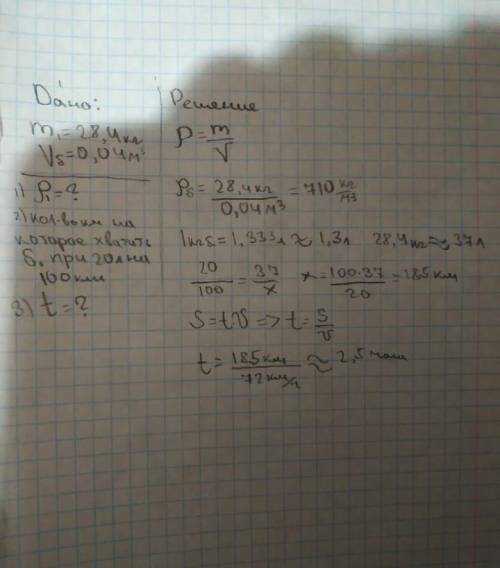 Дано:
m₁=28,4кг
Vб=0,04м³
1) ρ₁=?
2) кол-во км на
которое хватит
б. при 20л на
100км
3) t=?
Решение
ρ=m/V
ρб=28,4кг/0,04м³=710 кг/м³
1кгб=1,333л≈1,3л 28,4кг≈37л
20/100=37/x x=100·37/20=185км
S=tv=>t=S/v
t=185км/72км/ч≈2,5часа